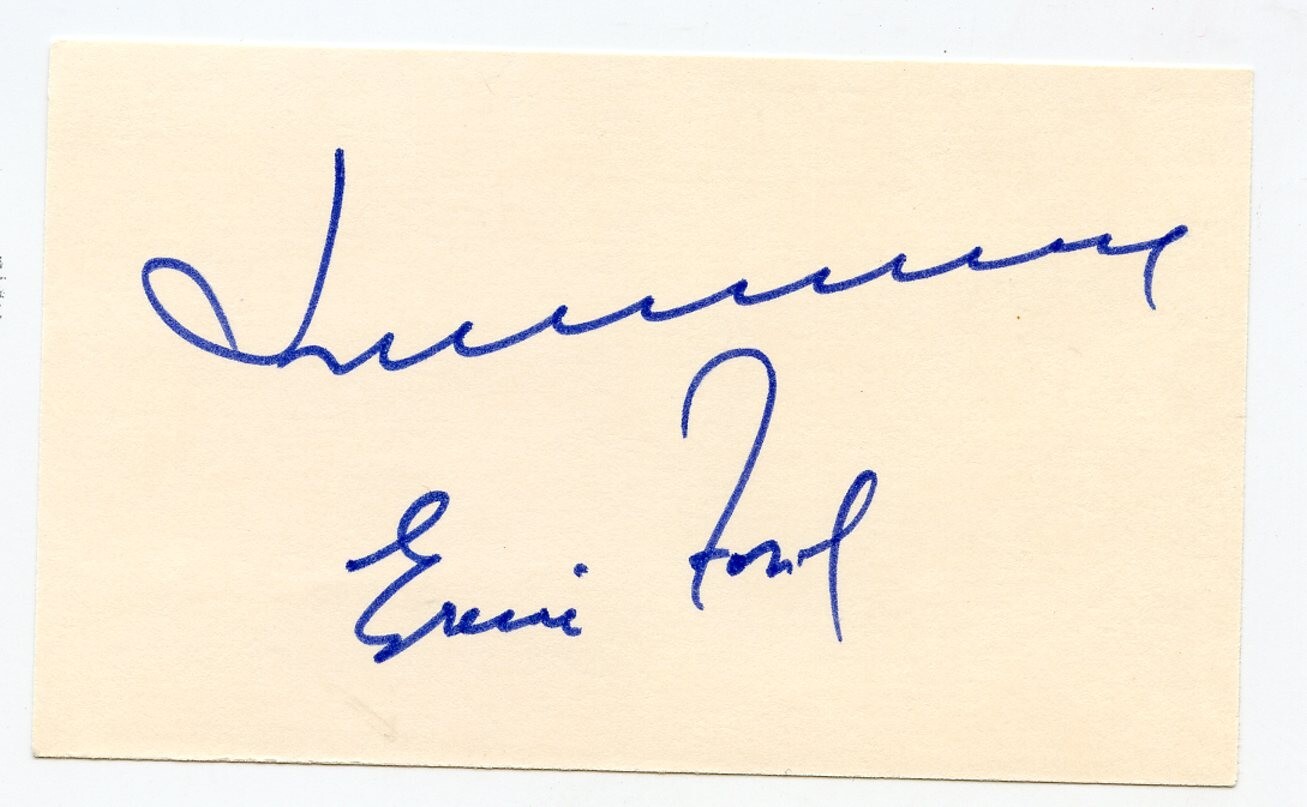 Tennessee
Ernie Ford